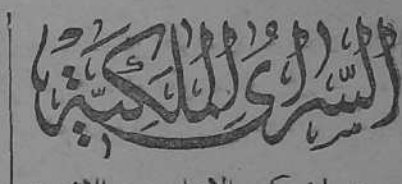 السراى الملكية